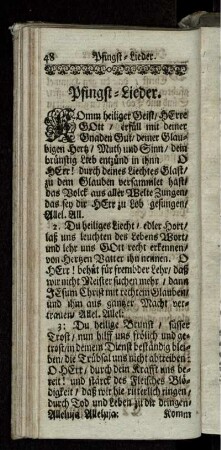 48 Pfingst-Lieder.
Pfingst-Lieder.
KOmm heiliger Geist/ HErre
GOtt / erfüll mit deiner
Gnaden Gut/ deiner Glau-
bigen Hertz / Muth und Sinn / dein
brünstig Lieb entzünd in ihnn O
HErr! durch deines Liechtes Glast/
zu dem Glauben versammlet hast/
das Volck aus aller Welt Zungen/
das sey dir HErr zu Lob gesungen/
Allel. All.
2. Du heiliges Liecht / edler Hort/
laß uns leuchten des Lebens Wort/
und lehr uns GOtt recht erkennen/
von Hertzen Vatter ihn nennen. O
HErr! behüt für frembder Lehr/ daß
wir nicht Meister suchen mehr / dann
JEsum Christ mit rechtem Glauben/
und ihm aus gantzer Macht ver-
trauen/ Allel. Allel.
3. Du heilige Brunst / süsser
Trost / nun hilff uns frölich und ge-
trost/ in deinem Dienst beständig blei-
ben/ die Trübsal uns nicht abtreiben:
O HErr / durch dein Krafft uns be-
reit! und stärck des Fleisches Blö-
digkeit / daß wir hie ritterlich ringen/
durch Tod und Leben zu dir dringen/
Alleluja: Alleluja: Komm